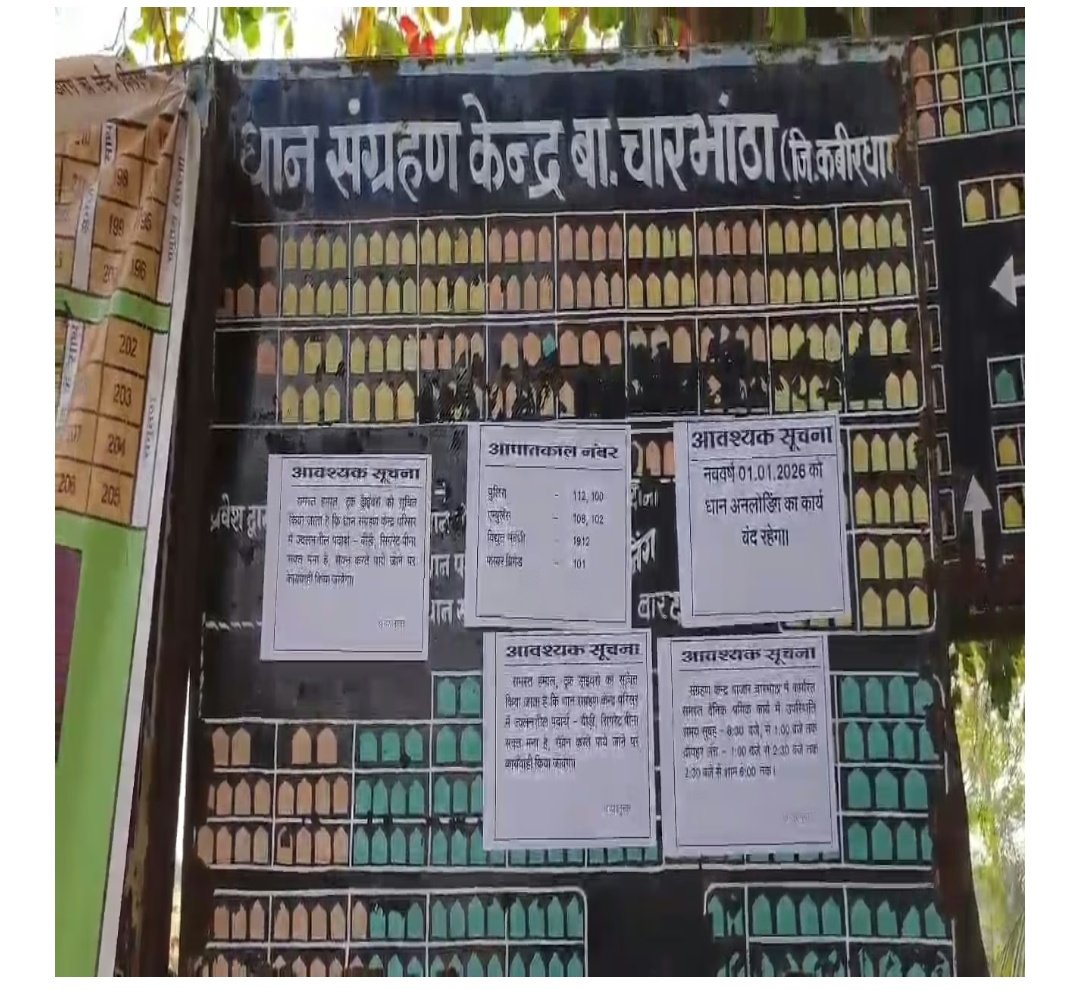 धान संग्रहण केन्द्र बा. चारभांठा (जि. कबीरधा
198
199
196
202
203
204
205
206
आवश्यक सूचना
समस्त हमाल, ट्रक ड्राईवरो को सूचित
किया जाता है कि धान संग्रहण केन्द्र परिसर
में ज्वलनशील पदार्थ - बीड़ी, सिगरेट पीना
सख्त मना है, सेवन करते पाये जाने पर
कार्यवाही किया जावेगा।
आपातकाल नंबर
पुलिस - 112, 100
एम्बुलेंस - 108, 102
विद्युत संबंधी - 1912
फायर ब्रिगेड - 101
आवश्यक सूचना
नववर्ष 01.01.2026 को
धान अनलोडिंग का कार्य
बंद रहेगा।
प्रवेश द्वा
आवश्यक सूचना
समस्त हमाल, ट्रक ड्राईवरो को सूचित
किया जाता है कि धान संग्रहण केन्द्र परिसर
में ज्वलनशील पदार्थ - बीड़ी, सिगरेट पीना
सख्त मना है, सेवन करते पाये जाने पर
कार्यवाही किया जावेगा।
आवश्यक सूचना
संग्रहण केन्द्र बाजार चारभांठा में कार्यरत
समस्त दैनिक श्रमिक कार्य में उपस्थिति
समय सुबह - 8:30 बजे, से 1:00 बजे तक
दोपहर लंच - 1:00 बजे से 2:30 बजे तक
2:30 बजे से शाम 6:00 तक।